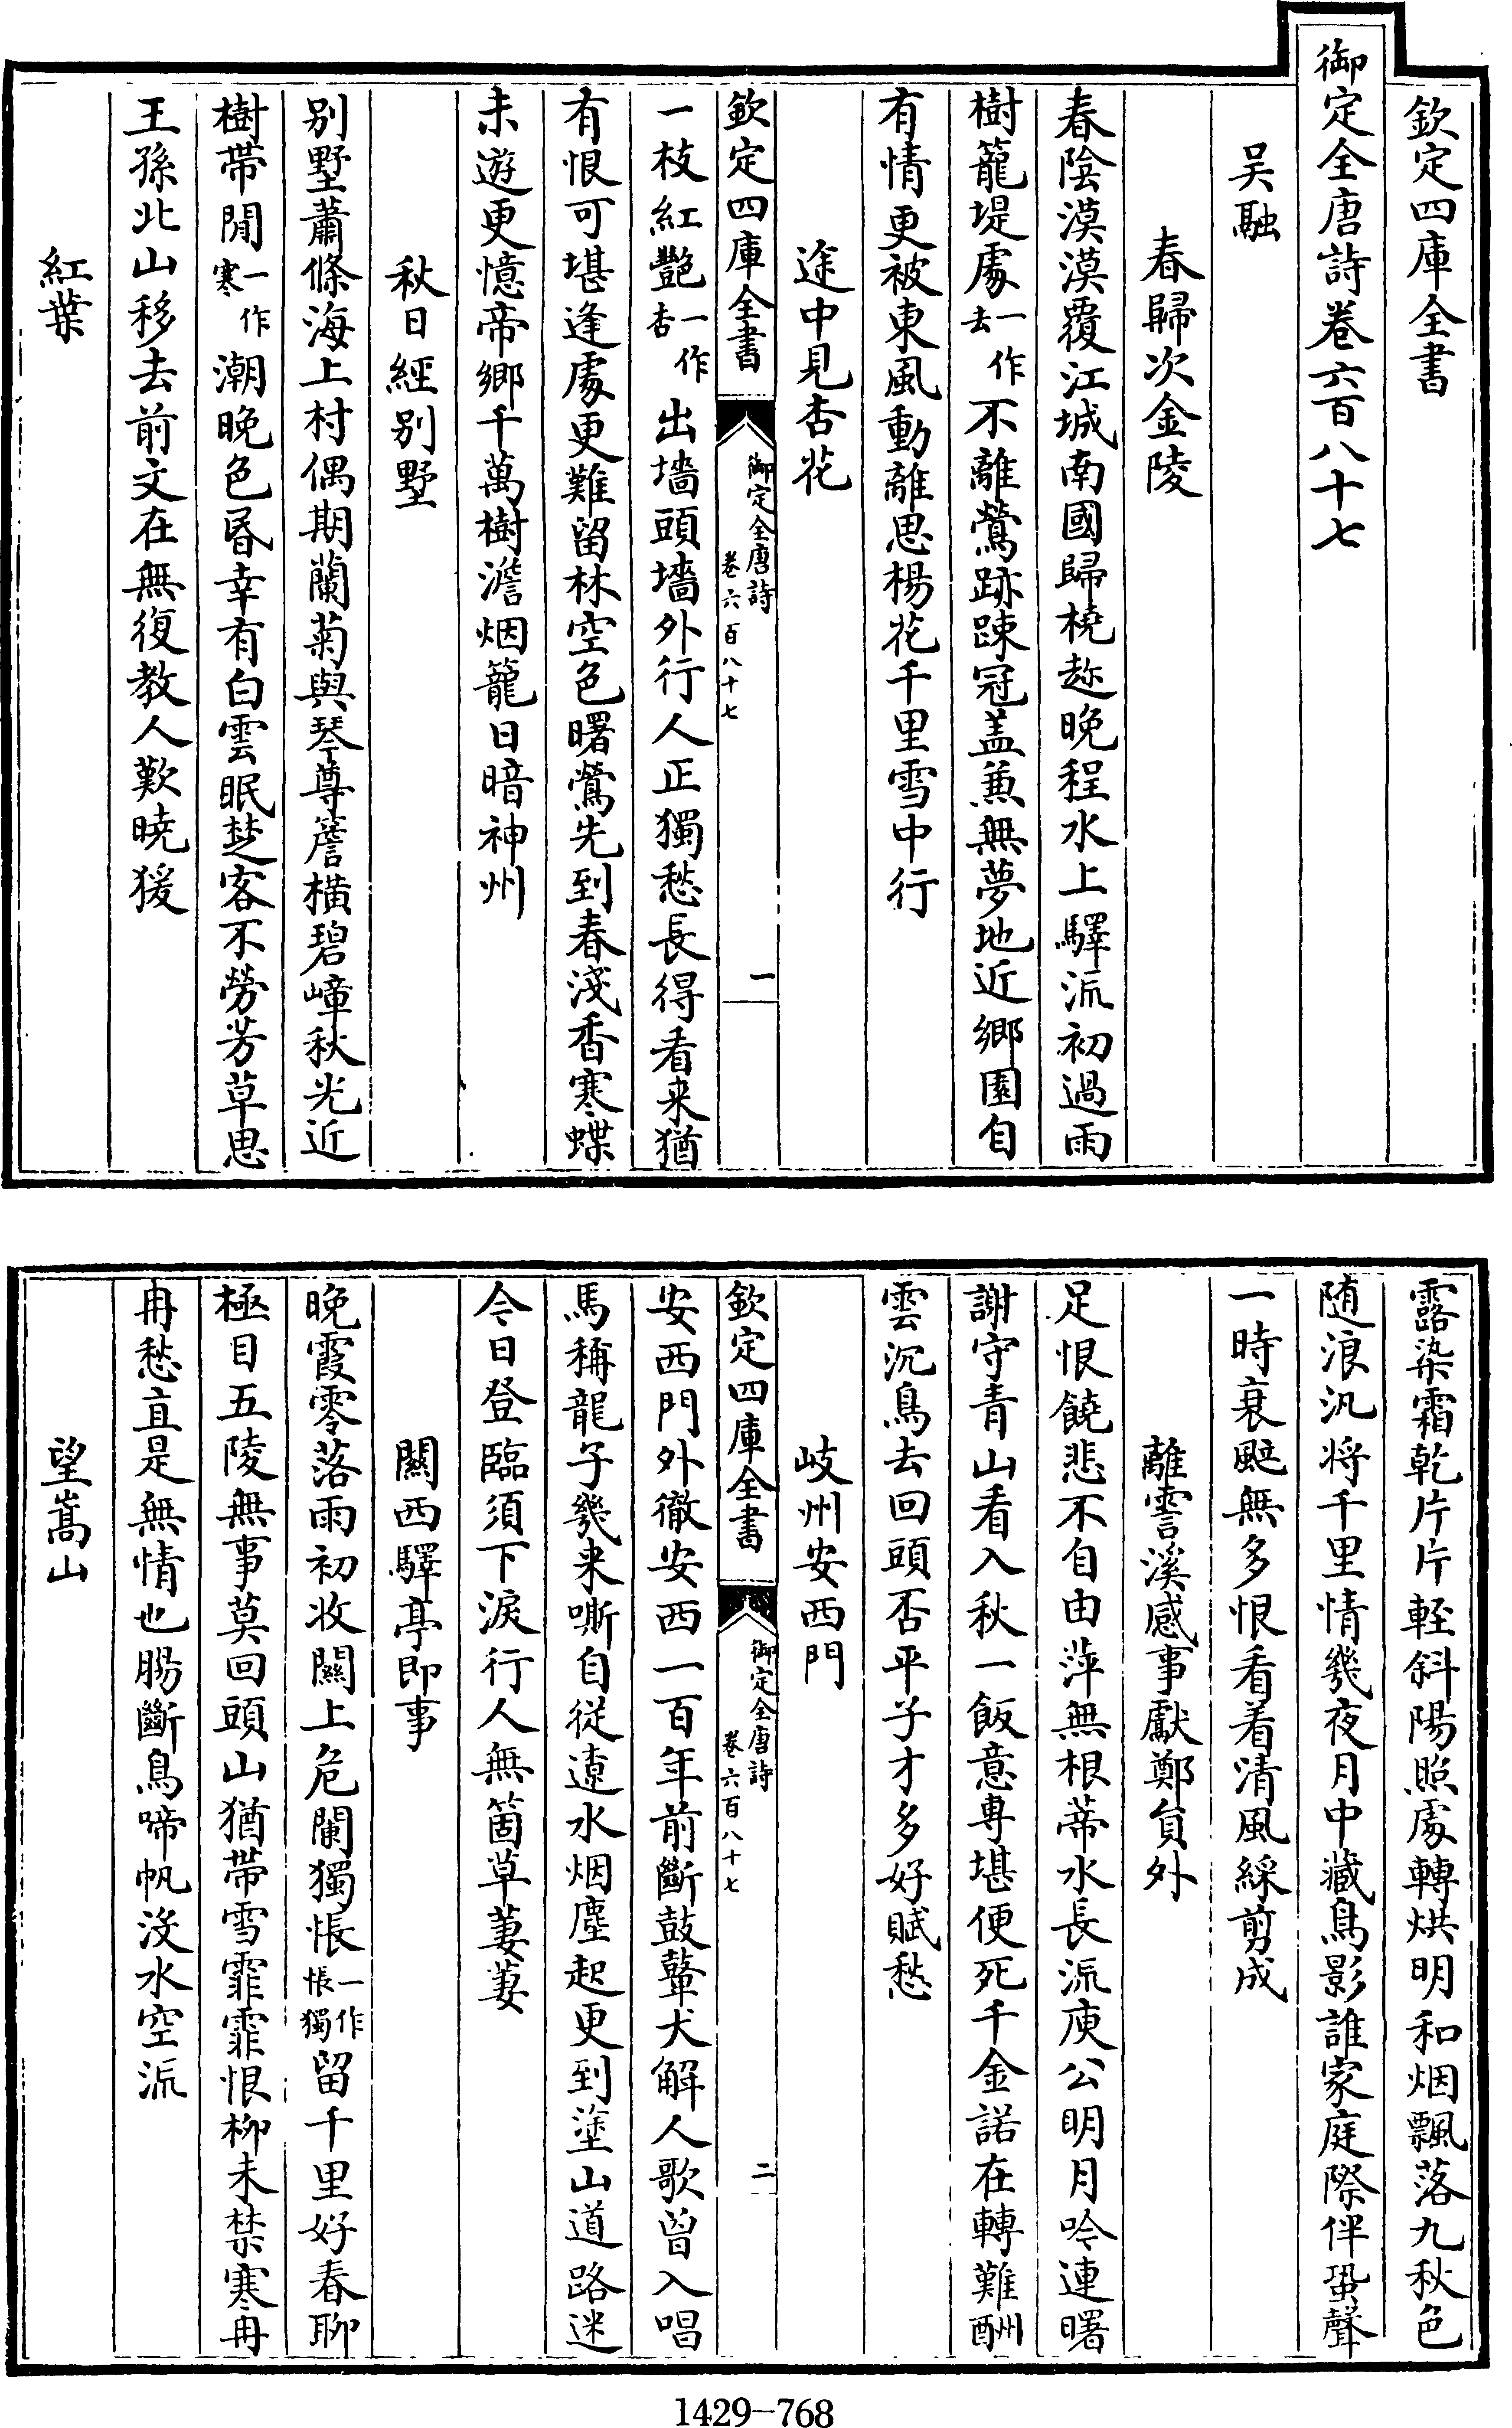 欽定四庫全書
御定全唐詩卷六百八十七
吴融
春歸次金陵
春陰漠漠覆江城南國歸橈趂晚程水上驛流初過雨
樹籠堤處一作去不離鶯跡踈冠盖兼無夢地近鄉園自
有情更被東風動離思楊花千里雪中行
途中見杏花
欽定四庫全書
御定全唐詩
卷六百八十七
一
一枝紅艷一作杏出墻頭墻外行人正獨愁長得看来猶
有恨可堪逢處更難留林空色曙鶯先到春淺香寒蝶
未遊更憶帝鄉千萬樹澹烟籠日暗神州
秋日經别墅
别墅蕭條海上村偶期蘭菊與琴尊簷橫碧嶂秋光近
樹帶閒一作寒潮晚色昏幸有白雲眠楚客不勞芳草思
王孫北山移去前文在無復教人歎曉猨
紅葉
露染霜乾片片輕斜陽照處轉烘明和烟飄落九秋色
随浪汎将千里情幾夜月中藏鳥影誰家庭際伴蛩聲
一時衰颭無多恨看着清風綵剪成
離霅溪感事獻鄭員外
足恨饒悲不自由萍無根蒂水長流庾公明月吟連曙
謝守青山看入秋一飯意専堪便死千金諾在轉難酬
雲沉鳥去回頭否平子才多好賦愁
岐州安西門
欽定四庫全書
御定全唐詩
卷六百八十七
二
安西門外徹安西一百年前斷鼓鼙犬解人歌曽入唱
馬稱龍子幾来嘶自從遠水烟塵起更到塗山道路迷
今日登臨須下淚行人無箇草萋萋
闗西驛亭即事
晚霞零落雨初收闗上危闌獨悵一作悵獨留千里好春聊
極目五陵無事莫回頭山猶帶雪霏霏恨柳未禁寒冉
冉愁直是無情也腸斷鳥啼帆沒水空流
望嵩山
1429-768